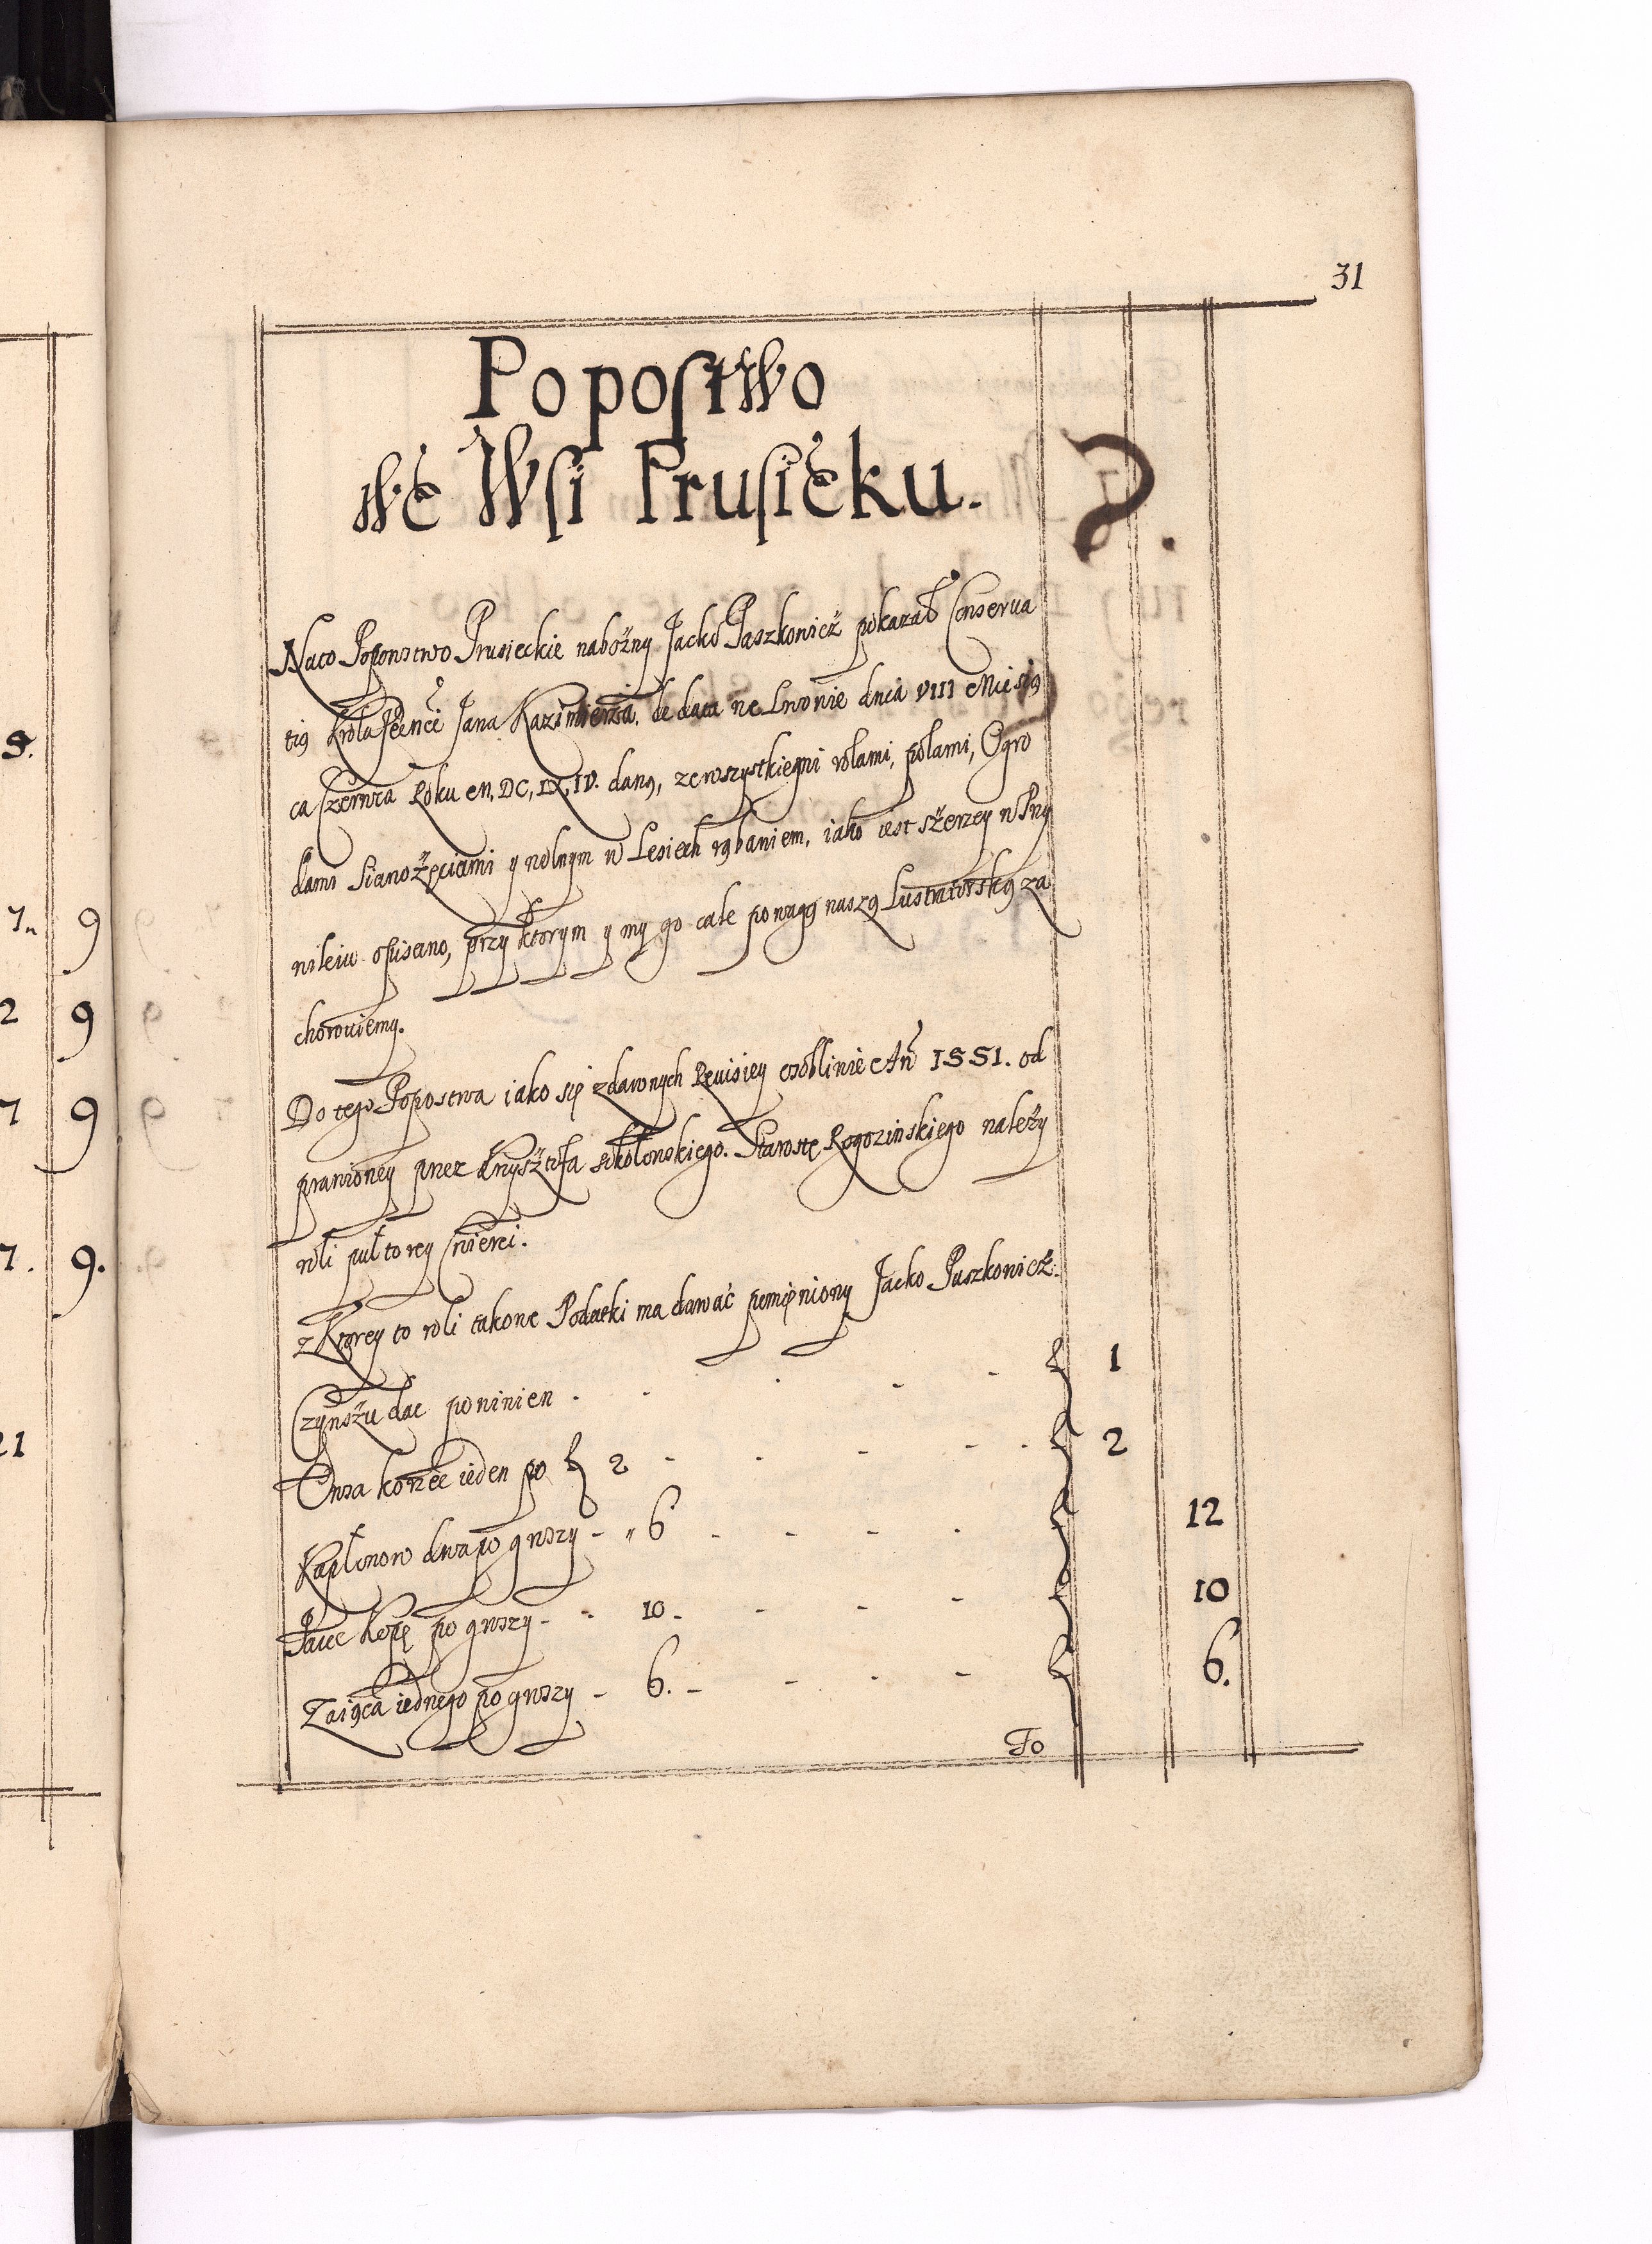 31
Popostwo
we Wsi Prusieku.
Na to Popowstwo Prusieckie nabożny Jacko Paszkowicz pokazał Conserva
tią Krola Jana Kazimierza, de data we Lwowie dnia VIII Miesią
ca Czerwca Roku M, DC, LX, IV. daną, ze wszystkiemi rolami, polami, Ogro
dami Sianożęciami y wolnym w Lesiech rąbaniem, iako iest szerzey w Przy
wileiu opisano, przy ktorym y my go cale powagą naszą Lustratorską za
chowuiemy.
Do tego Popostwa iako się z dawnych Rewisiey osobliwie Ann 1551. od
prawioney przez Krysztofa Sokołowskiego. Starostę Rogozinskiego należy
roli pułtorey Cwierci.
z Ktorey to roli takowe Podatki ma dawać pomięniony Jacko Paszkowicz.
Czynszu dac powinien - - - - - 1
Owsa korzec ieden po 2 - - - - 2
Kapłonow dwa po groszy - " 6 - - - - 12
Jaiec Kopę po groszy - - 10 - - - - 10
Zaiąca iednego po groszy - 6. - - - - 6.
To
S.
7" 9
2 9
7 9
7. 9.
21